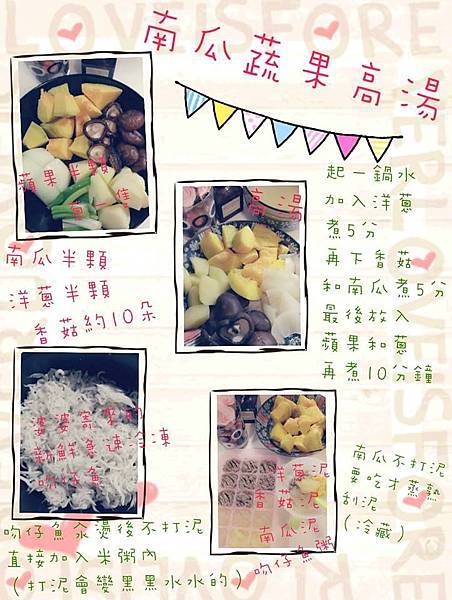 南瓜蔬果高湯
蘋果半顆
蔥一隹
南瓜半顆
洋蔥半顆
香菇約10朵
高湯
起一鍋水
加入洋蔥
煮5分
再下香菇
和南瓜煮5分
最後放入
蘋果和蔥
再煮10分鐘
婆婆寄來的
新鮮急速冷凍
吻仔魚
洋蔥泥
香菇泥
南瓜泥
吻仔魚粥
南瓜不打泥
要吃才蒸熟
刮泥
（冷藏）
吻仔魚汆燙後不打泥
直接加入米粥內
（打泥會變黑黑水水的）